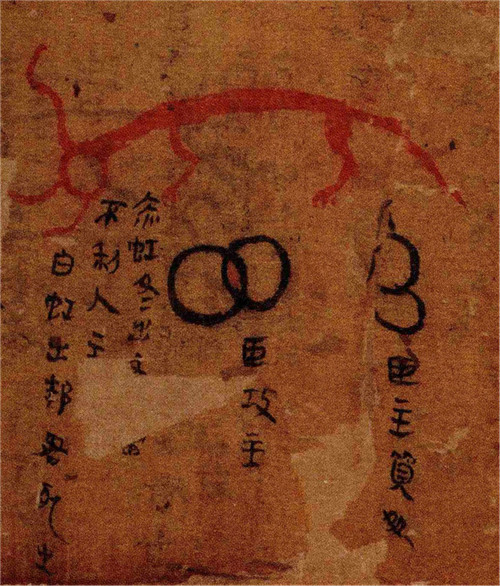 臣主貿処
臣攻主
赤虹冬出主
不利人主
白虹出邦君死之